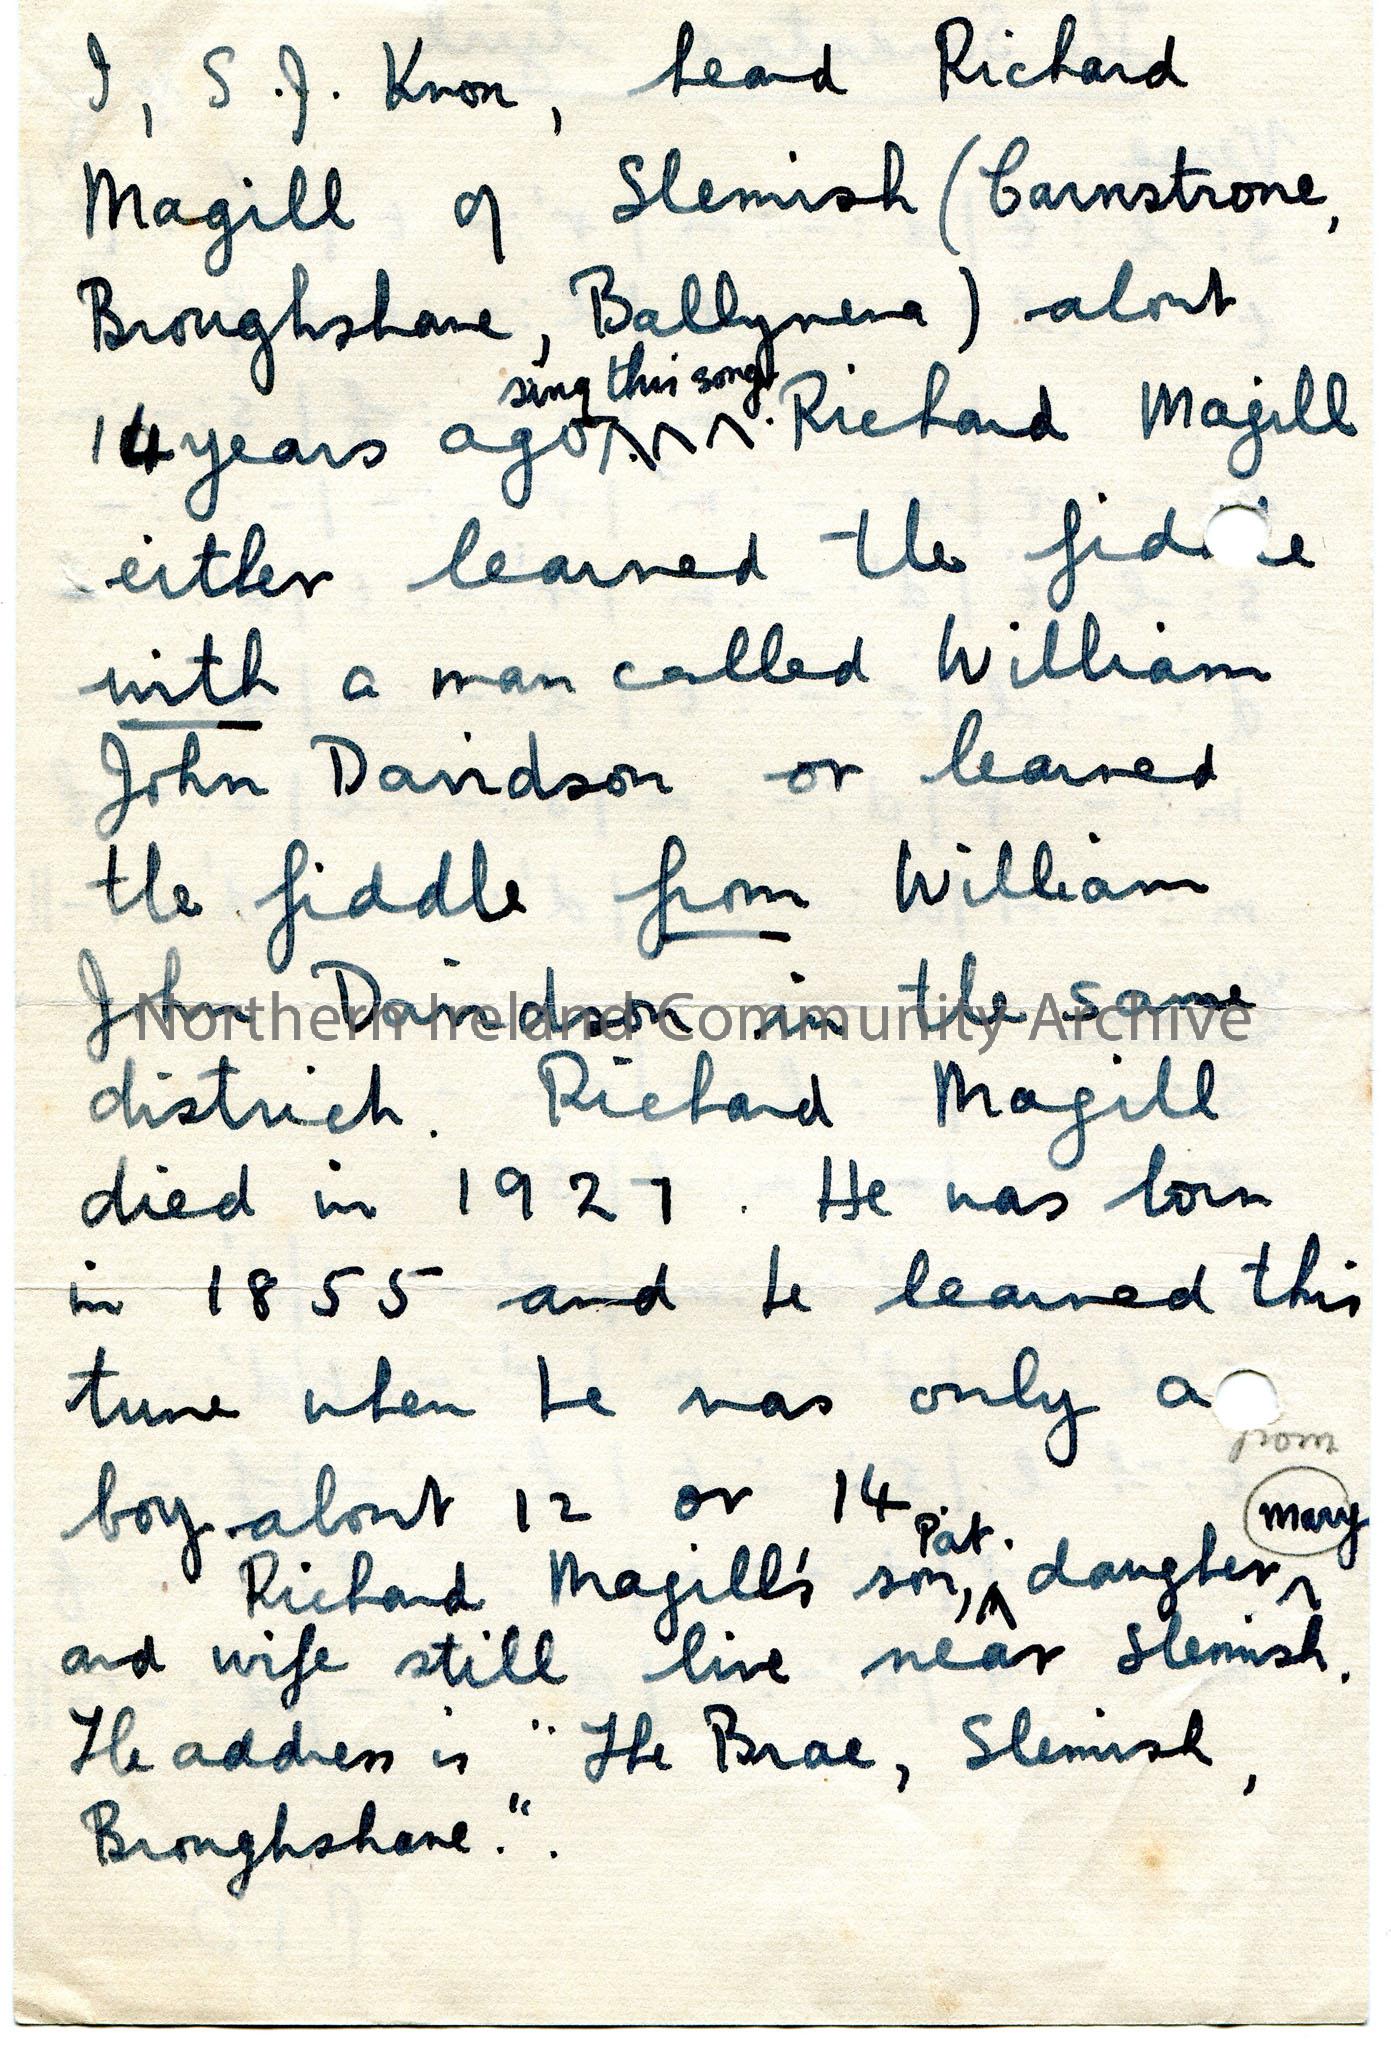 I, S.J. Knox, heard Richard
Magill of Slemish (Carnstrone,
Broughshane, Ballymena) about
sing this song
14 years ago. Richard Magill
either learned the fiddle
with a man called William
John Davidson or learned
the fiddle from William
John Davidson in the same
Northern Ireland Community Archive
district. Richard Magill
died in 1927. He was born
in 1855 and he learned this
tune when he was only a
boy about 12 or 14
Pat. Mary
Richard Magill's son, daughter,
and wife still live near Slemish.
The address is "The Brae, Slemish,
Broughshane.".